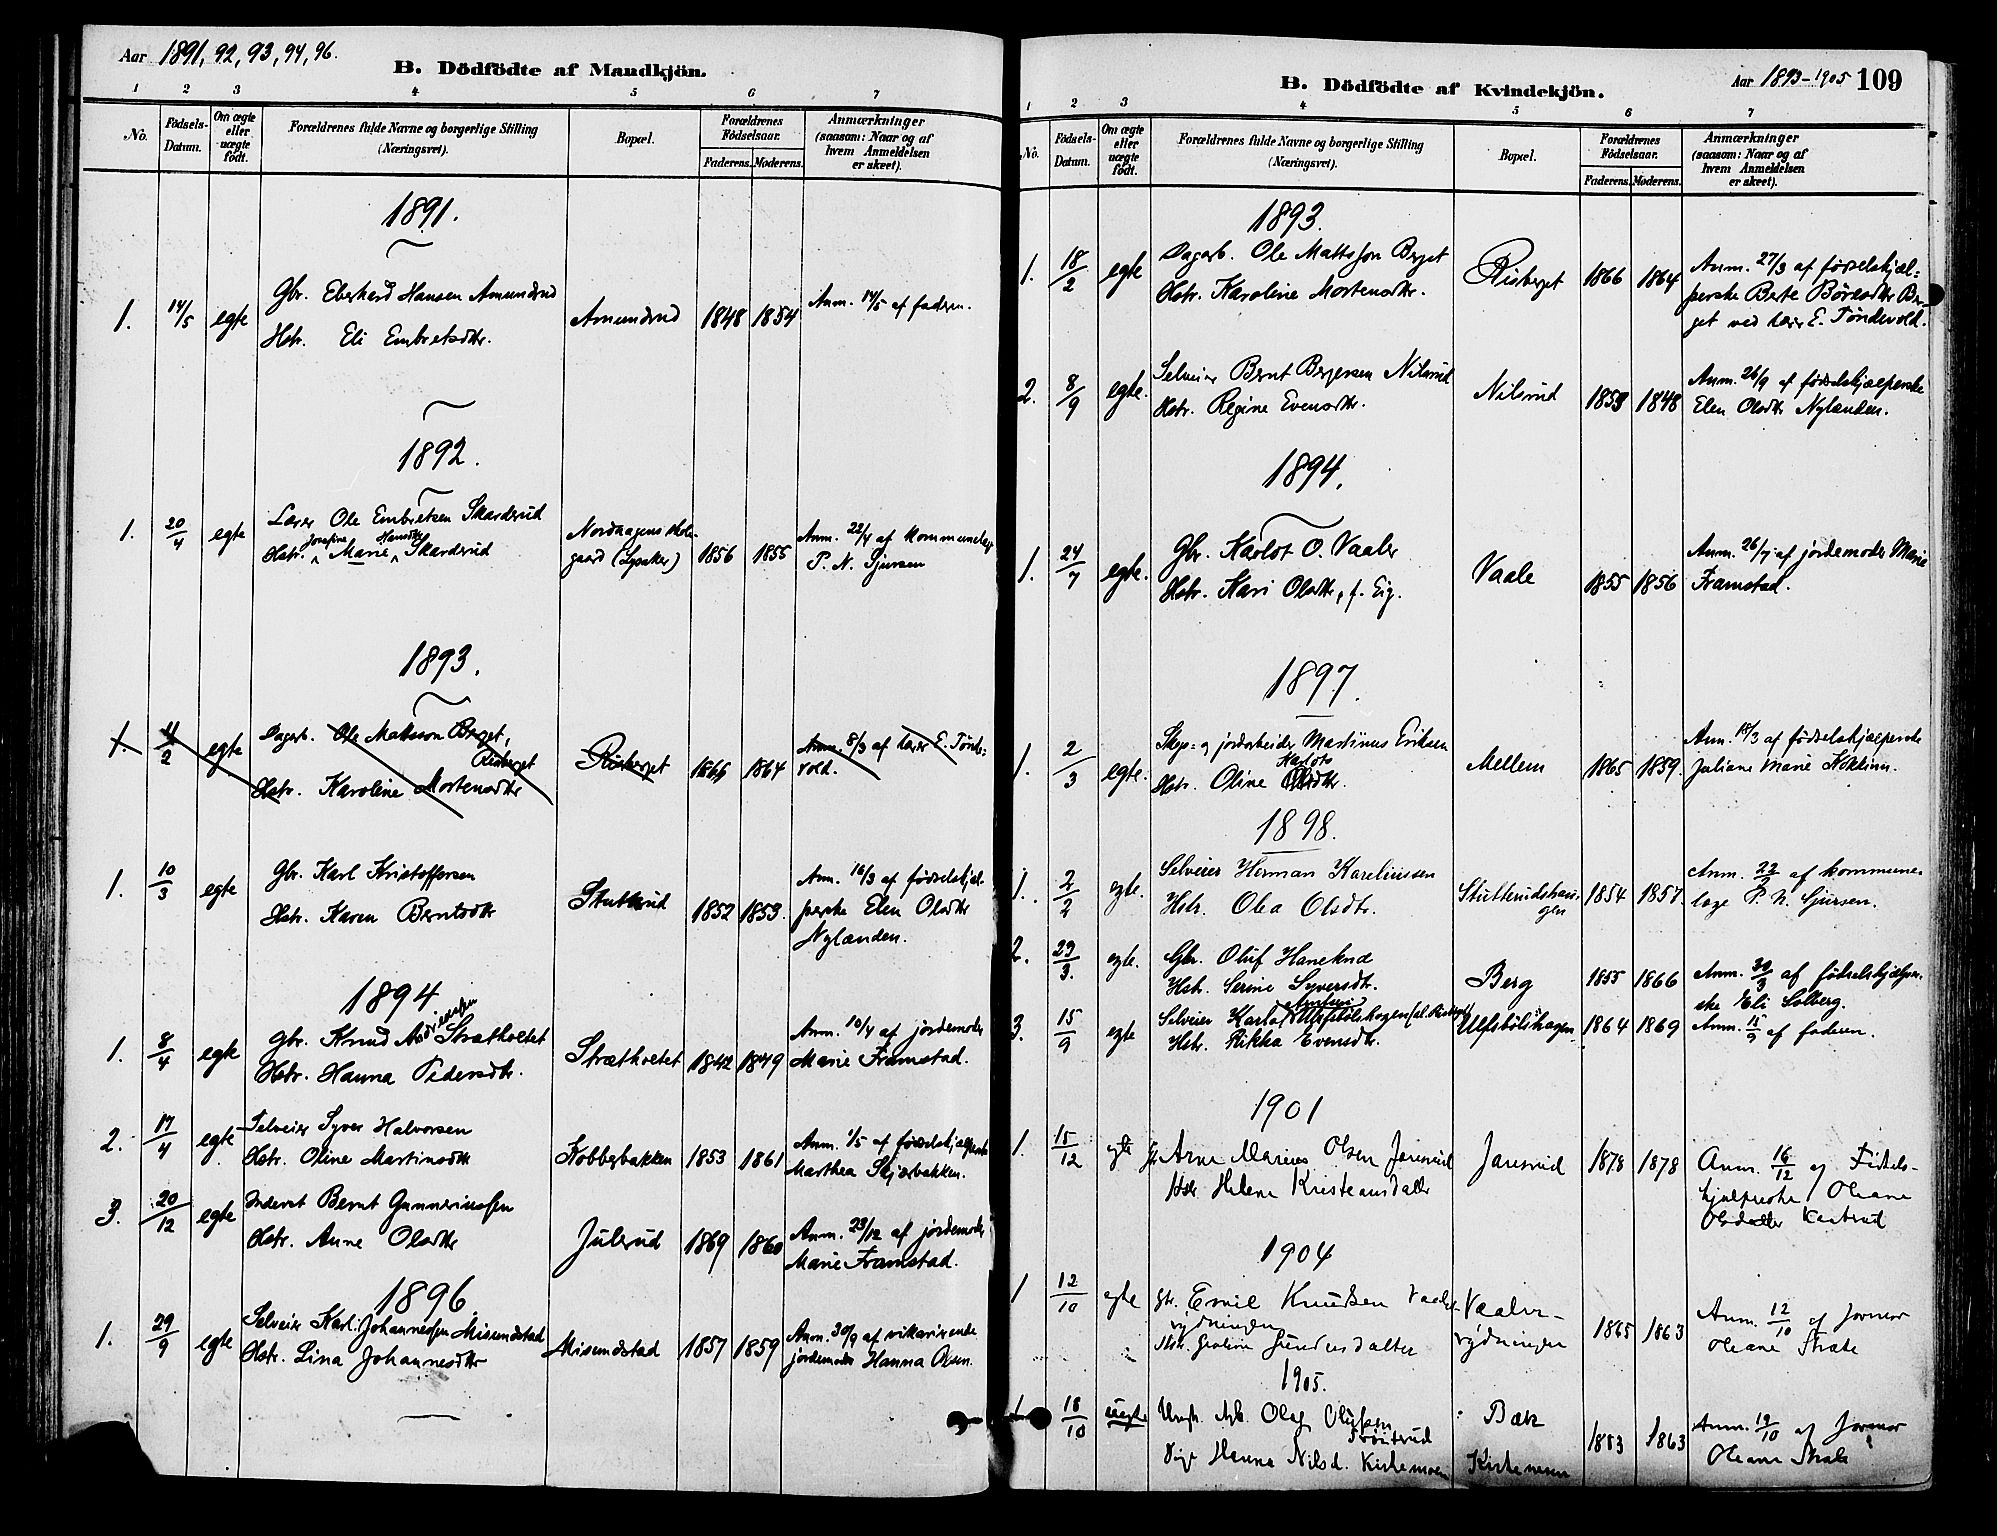 Aar 1891, 92, 93, 94, 96.
B. Dödfödte af Mandkjön.
1 2 3 4 5 6 7
No. Fødsels-Datum. Om ægte eller uægte født. Forældrenes fulde Navne og borgerlige Stilling (Næringsvei). Bopæl. Forældrenes Fødselsaar. Faderens. Moderens. Anmærkninger (saasom: Naar og af hvem Anmeldelsen er skeet).
1891.
1. 14/5 egte Gbr. Eberhard Hansen Amundrud Amundrud 1848 1854 Anm. 14/5 af faderen.
Hstr. Eli Embretsdtr.
1892.
1. 20/4 egte Lærer Ole Embretsen Skarderud Nordhagens skole- 1856 1855 Anm. 22/4 af kommunelæge
Hstr. Josefine Marie Hansdtr Skarderud gaard (Lysaker) P. N. Sjursen
1893.
1. 4/2 egte Dagarb. Ole Mattsson Berget, Risberget Risberget 1866 1864 Anm. 8/3 af lærer E. Tönde-
Hstr. Karoline Mortensdtr vold.
1. 10/3 egte Gbr. Karl Kristoffersen Stutterud 1852 1853. Anm. 16/3 af födselshjæl-
Hstr. Karen Berntsdtr perske Elen Olsdtr
Nylænden.
1894
1. 8/4 egte Gbr. Knud Strætkvetet Strætkvetet 1842 1849 Anm. 10/4 af jordemoder
Hstr. Hanna Pedersdtr. Marie Framstad.
2. 17/4 egte Selveier Syver Halvorsen Kobberbakken 1853 1861 Anm. 1/5 af födselshjælperske
Hstr. Oline Martinsdtr Marthea Skjærbakken.
3. 20/12 egte Inderst Bernt Gunneriussen Julsrud 1869 1860 Anm. 23/12 af jordemoder
Hstr. Anne Olsdtr Marie Framstad.
1896.
1. 29/9 egte Selveier Karl Johannessen Misundstad Misundstad 1857 1859 Anm. 30/9 af vikarierende
Hstr. Lina Johannesdtr jordemoder Hanna Olsen.
B. Dödfödte af Kvindekjön.
Aar 1893-1905 109
1 2 3 4 5 6 7
No. Fødsels-Datum. Om ægte eller uægte født. Forældrenes fulde Navne og borgerlige Stilling (Næringsvei). Bopæl. Forældrenes Fødselsaar. Faderens. Moderens. Anmærkninger (saasom: Naar og af hvem Anmeldelsen er skeet).
1893.
1. 18/2 egte Dagarb. Ole Mattsson Berget Risberget 1866 1864 Anm. 27/3 af födselshjæl-
Hstr. Karoline Mortensdtr. perske Berte Böresdtr Ber-
get ved lærer E. Töndevold.
2. 8/9 egte. Selveier Bernt Bergersen Nilsrud Nilsrud 1853 1848 Anm. 26/9 af födselshjælperske
Hstr. Regine Evensdtr. Elen Olsdtr Nylænden.
1894.
1. 24/7 egte. Gbr. Karlot O. Vaaler Vaale 1855 1856 Anm. 26/7 af jordemoder Marie
Hstr. Kari Olsdtr, f. Eig. Framstad.
1897.
1. 2/3 egte. Skogs- og jordarbeider Martinus Eriksen Mellem 1865 1859. Anm. 18/3 af födselshjælperske
Hstr. Oline Karlotsdtr. Juliane Marie Kokkinn.
1898.
1. 2/2 egte. Selveier Herman Kareliussen Stutterudshau- 1854 1857. Anm. 22/2 af kommune-
Hstr. Olea Olsdtr. gen læge P. N. Sjursen.
2. 29/3. egte. Gbr. Oluf Haneknæ Berg 1855 1866 Anm. 30/3 af födselshjælper-
Hstr. Serine Syversdtr. ske Eli Solberg.
3. 15/9 egte Selveier Karl Ulfsbölshagen Ulfsbölshagen 1864 1869 Anm. 15/9 af faderen.
Hstr. Rikka Evensdtr.
1901
1. 15/12 egte Arne Marius Olsen Jaresrud Jaresrud 1878 1878 Anm. 16/12 af Födsels-
Hstr. Helene Kristiansdatter hjælperske Oleane
Olsdatter
1904
1 12/10 egte Gbr. Emil Knudsen Vaaler- Vaaler- 1865 1863 Anm. 12/10 af Jormor
rydningen rydningen Oleane Stræte
Hstr.
1905.
1 18/10 uegte Ungk. Olaf Olufsen Bæk 1883 1863 Anm. 19/10 af Jormor
Pige Hanna Nilsd. Kirkemoen Kirkemoen Oleane Stræte